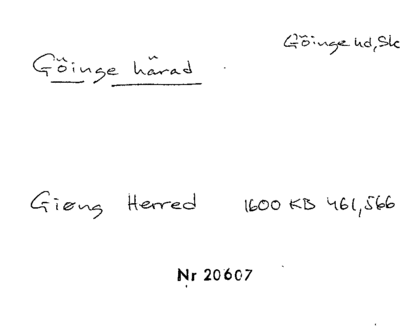 Göinge hd, Sk
Göinge härad
Giøng Herred 1600 KB 461,566
Nr 20607